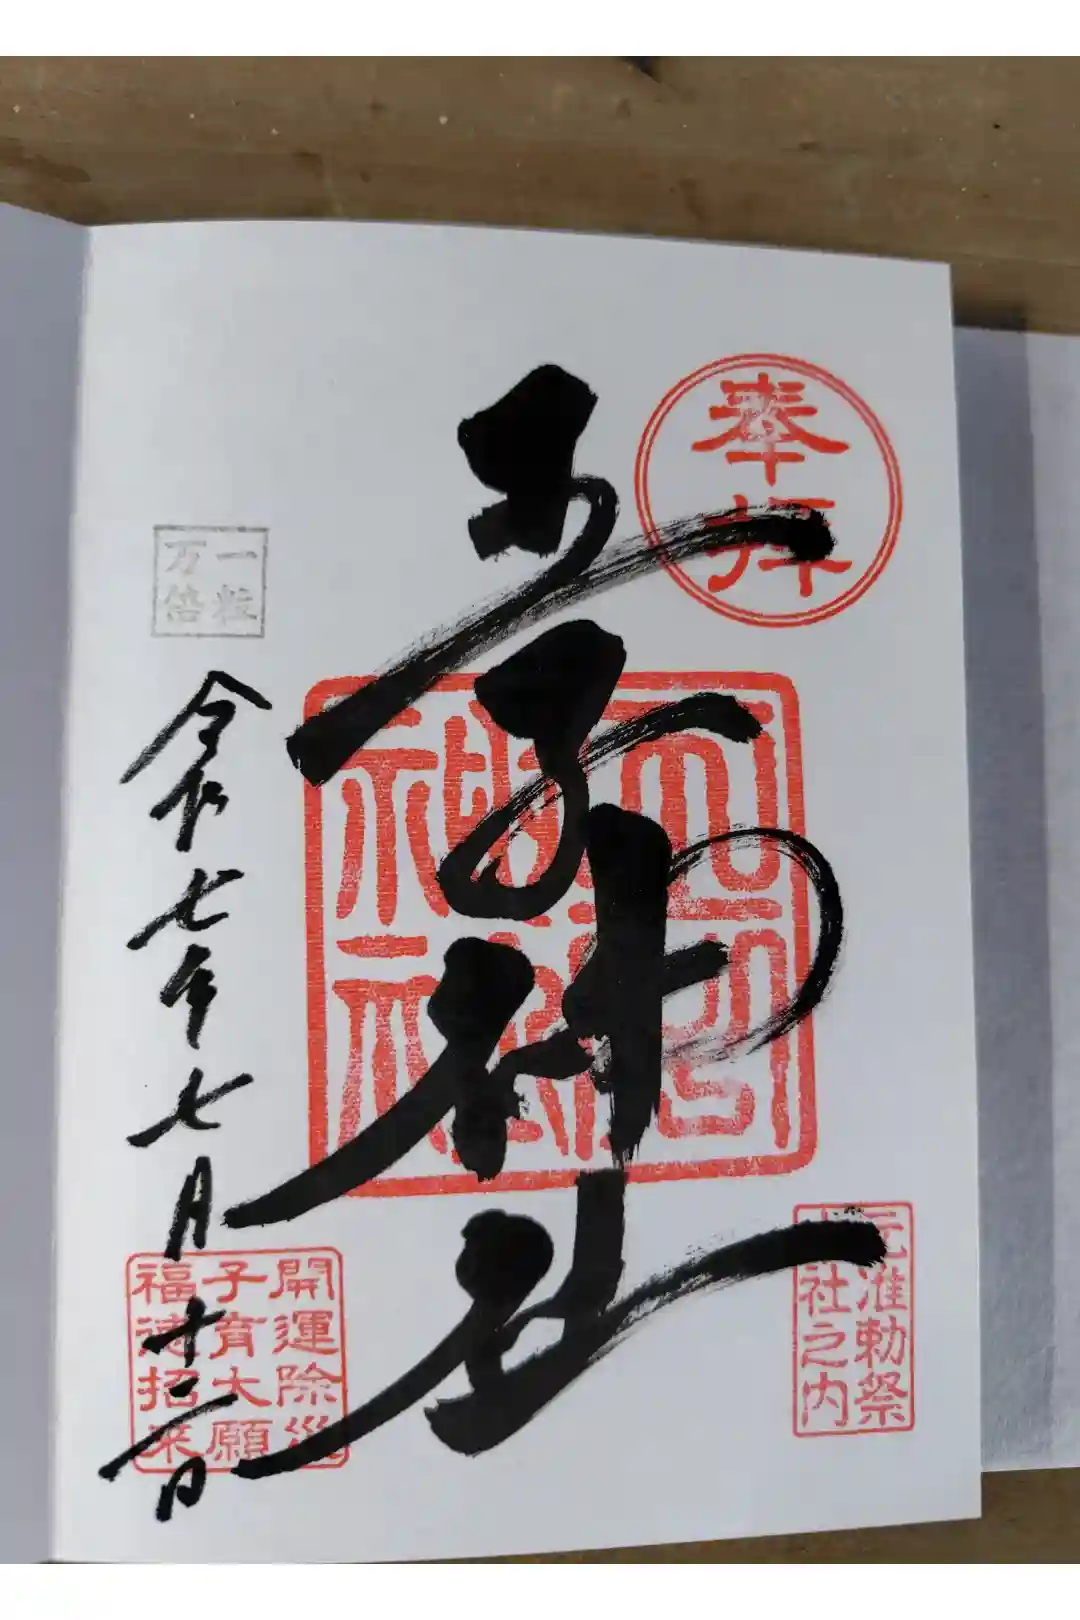 奉拝
王子神社
元准勅祭
十社之内
一粒
万倍
令和七年七月十二日
開運除災
子育大願
福徳招来